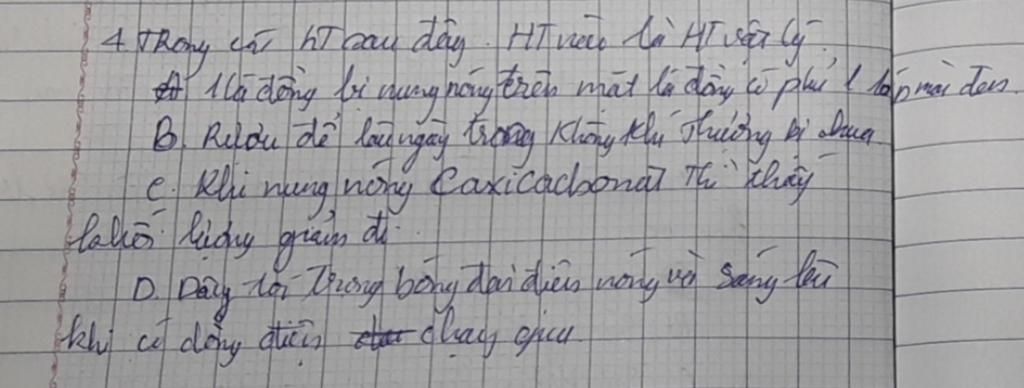 4. Trong các HT sau đây. HT nào là HT vật lý.
A 1 lá đồng bị nung nóng trên mặt lá đồng có phủ 1 lớp màu đen.
B. Rượu để lâu ngày trong không khí thường bị chua
C. Khi nung nóng Caxicacbonat thì thấy
lượng giảm đi.
D. Dây tóc trong bóng đèn điện nóng và sáng lên
khi có dòng điện chạy qua